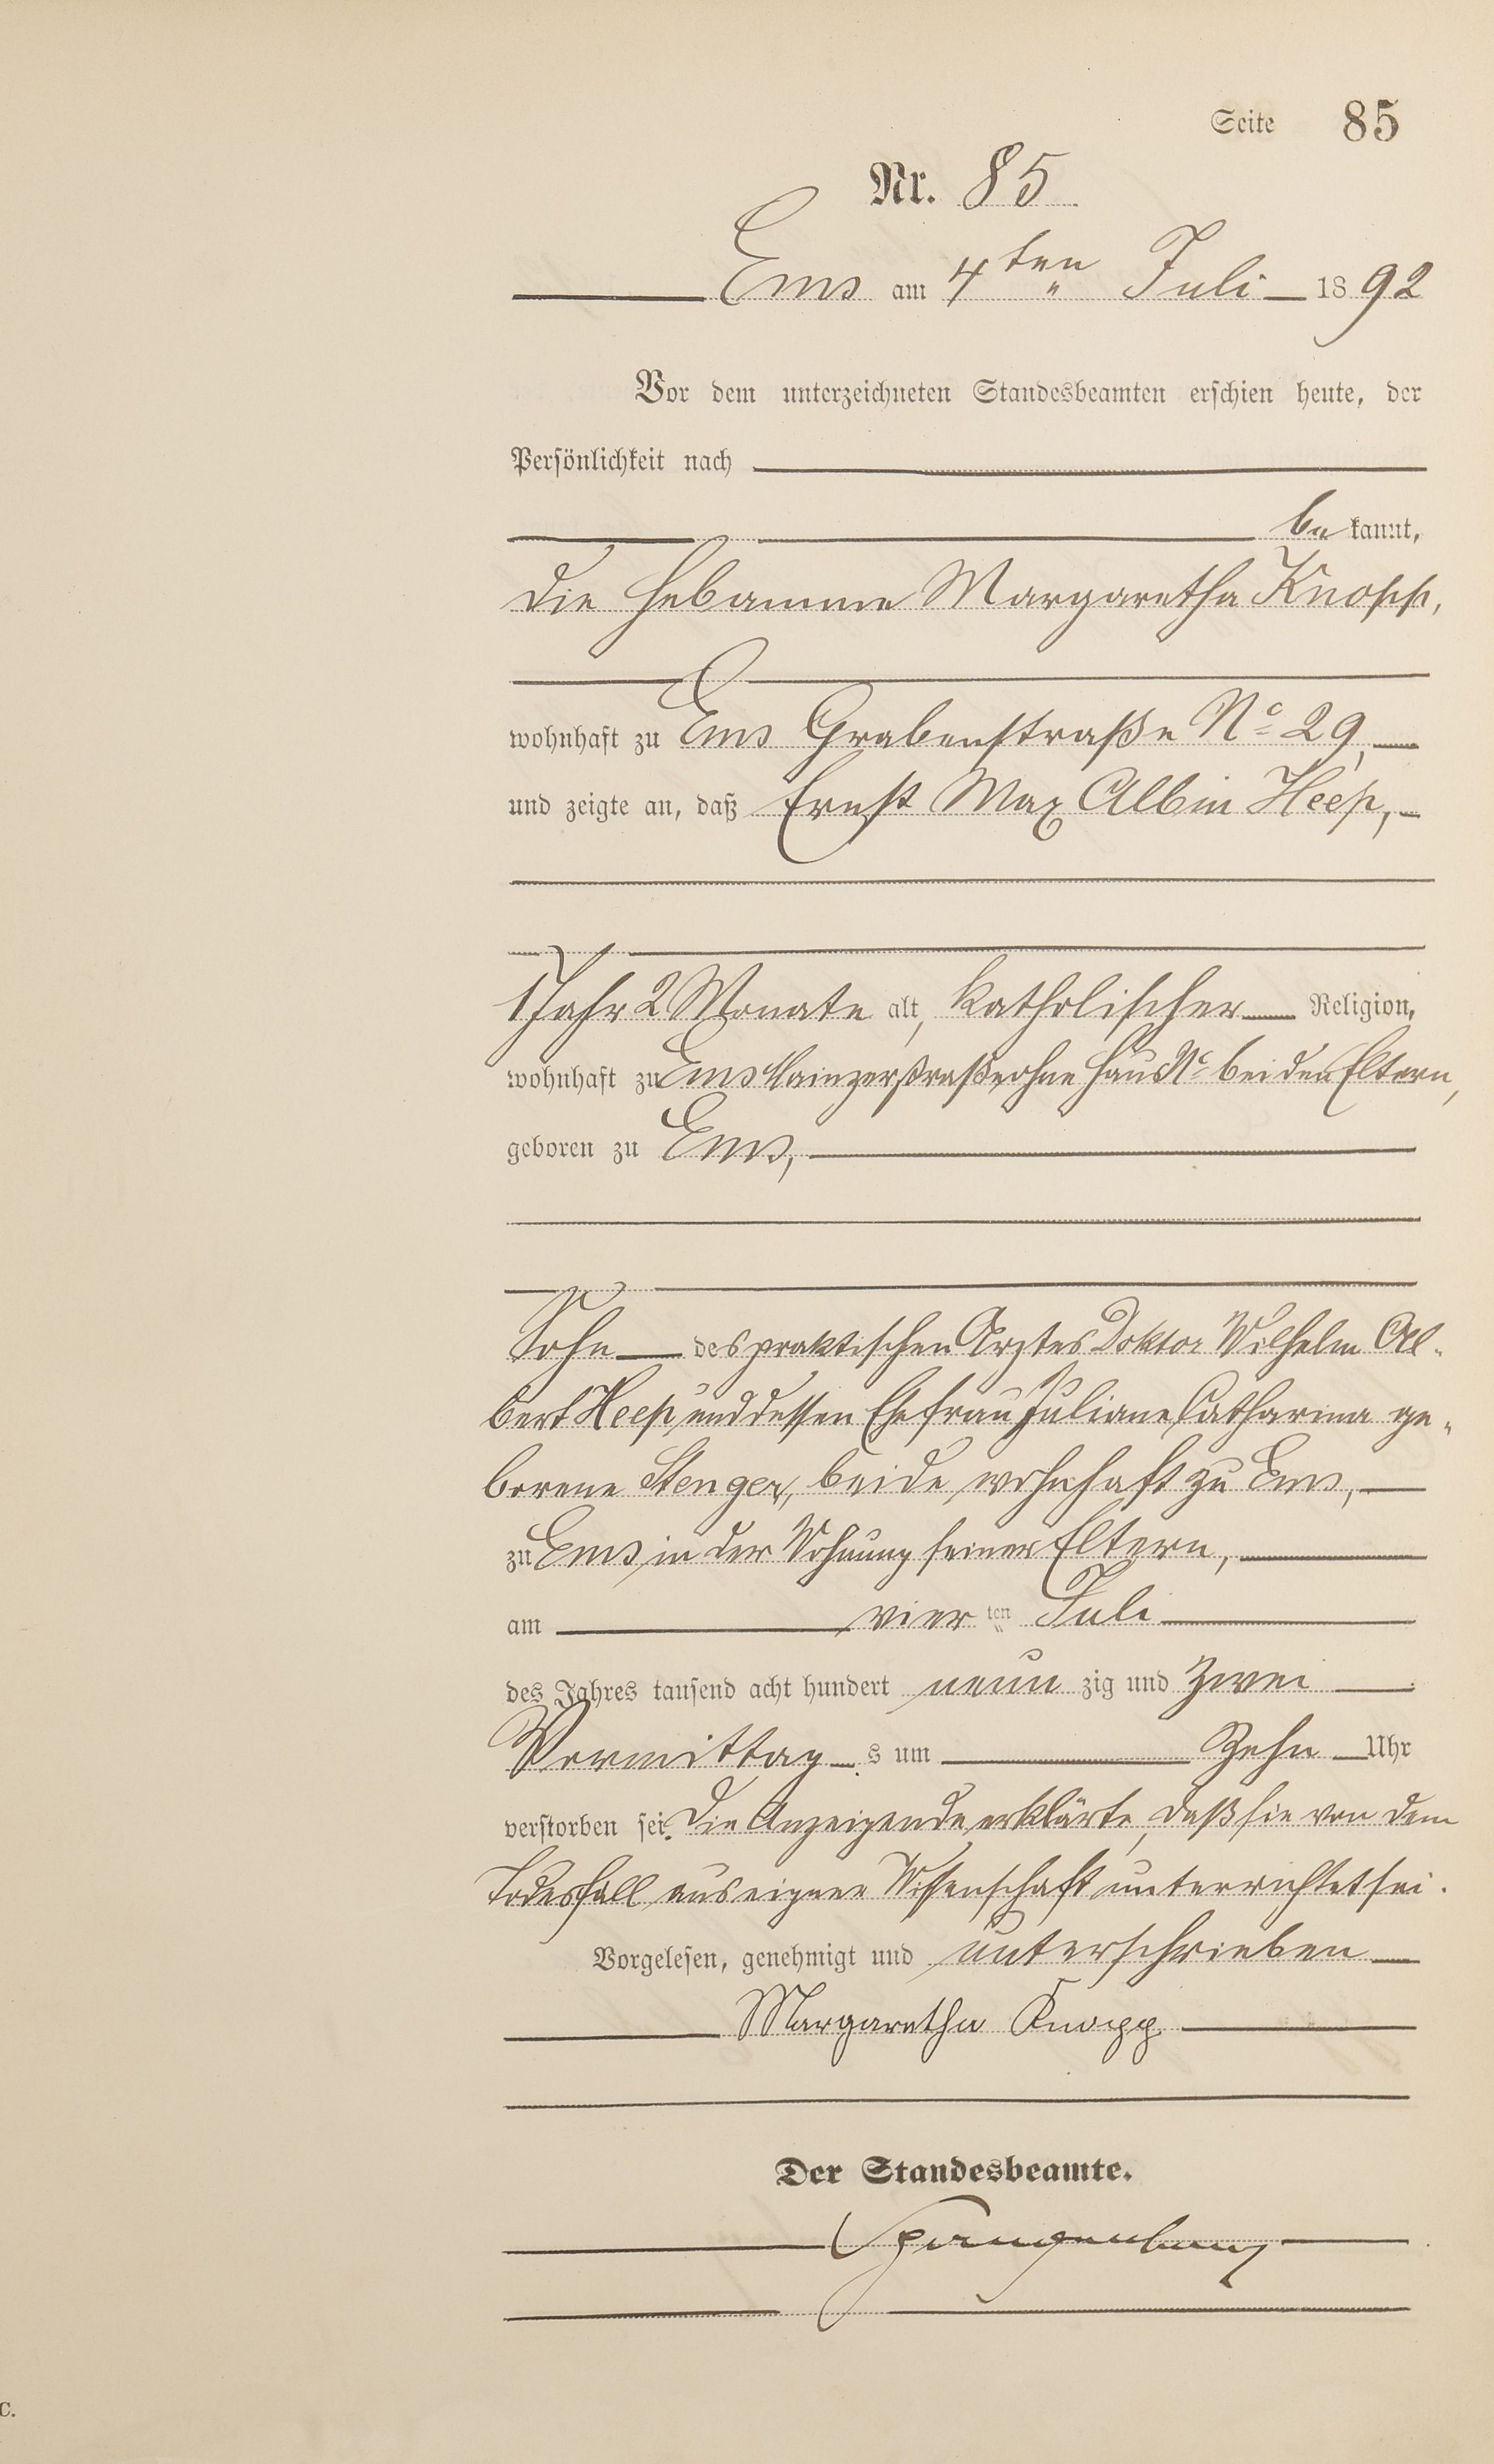 Seite 85
Nr. 85
Ems am 4ten Juli 1892
Vor dem unterzeichneten Standesbeamten erschien heute, der
Persönlichkeit nach
bekannt,
die Hebamme Margaretha Knopp,
wohnhaft zu Ems Grabenstraße No 29,
und zeigte an, daß Ernst Max Albin Heep,
1 Jahr 2 Monate alt, katholischer Religion,
wohnhaft zu Ems Mainzerstraße ohne Haus No bei den Eltern,
geboren zu Ems,
Sohn des praktischen Arztes Doktor Wilhelm Al-
bert Heep und dessen Ehefrau Juliane Catharina ge-
borene Stenger, beide wohnhaft zu Ems,
zu Ems in der Wohnung seiner Eltern,
am vierten Juli
des Jahres tausend acht hundert neunzig und zwei
Vormittags um Zehn Uhr
verstorben sei. Die Anzeigende erklärte, daß sie von dem
Todesfall aus eigner Wissenschaft unterrichtet sei.
Vorgelesen, genehmigt und unterschrieben
Margaretha Knopp
Der Standesbeamte.
C.